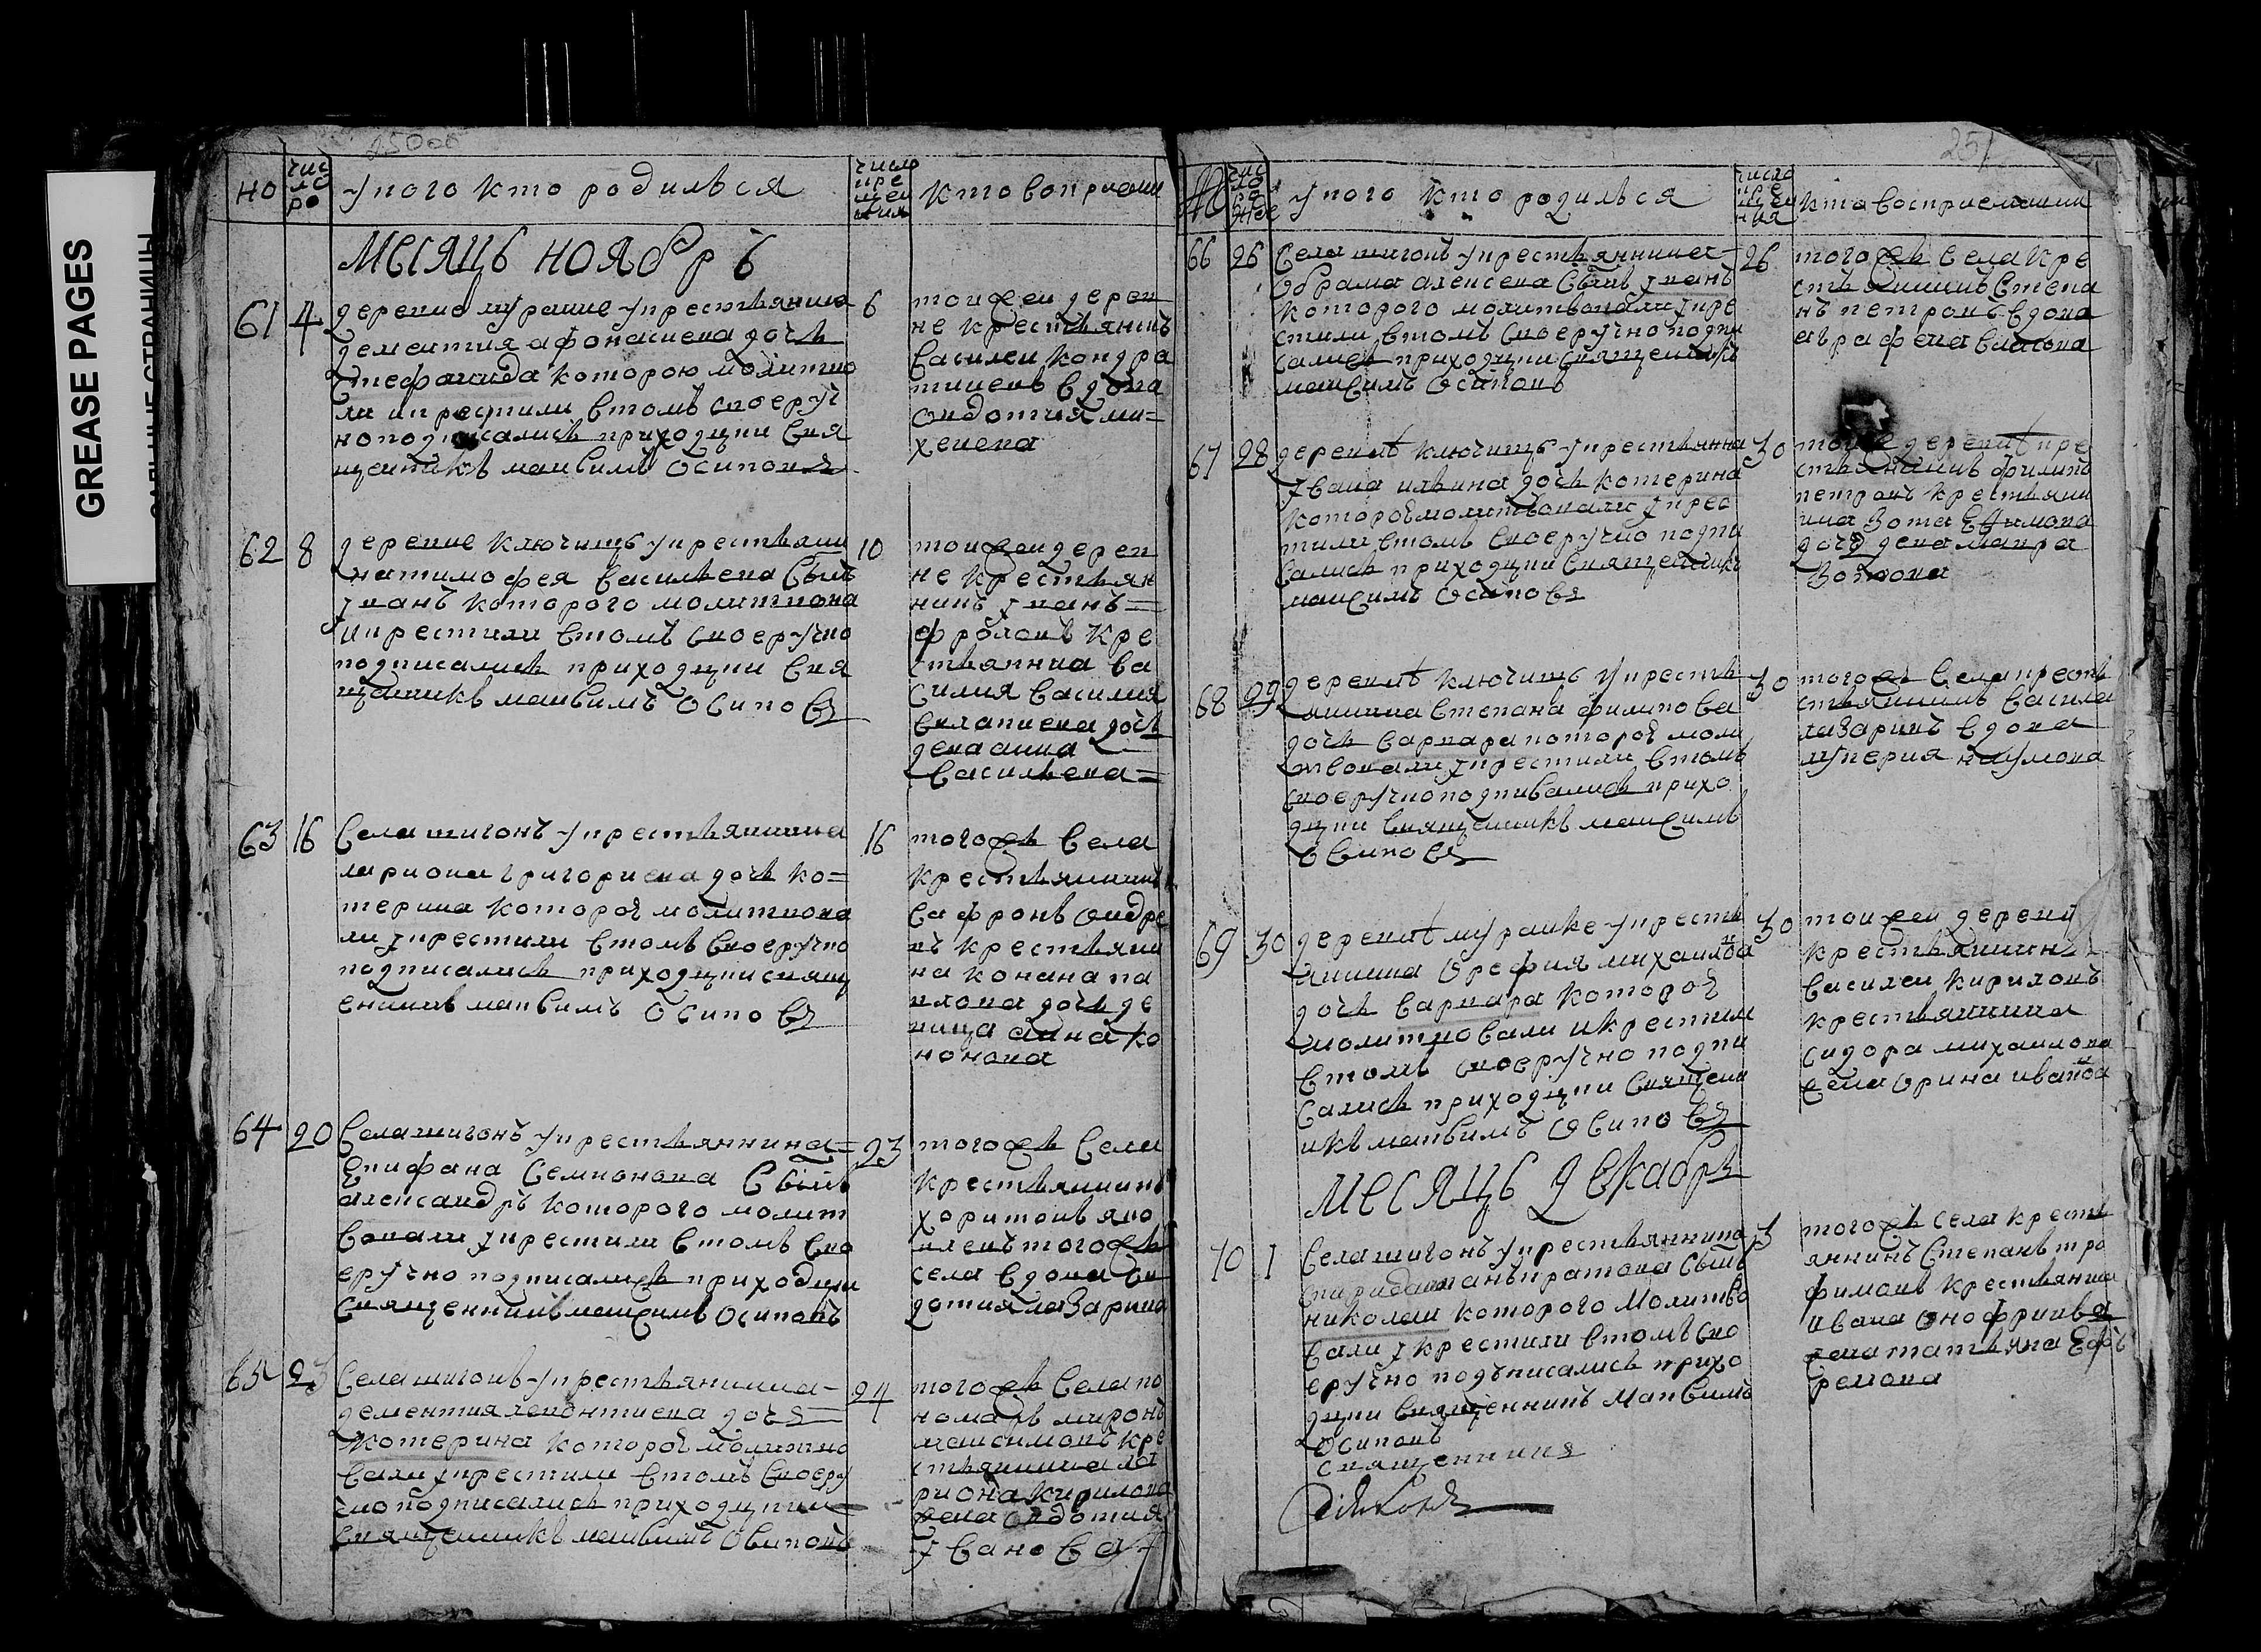 GREASE PAGES
25000
но
чис
ло
ро
у кого кто родился
число
кре
щен
ия
кто воприемн
месяцъ ноябръ
61
4
деревне муравке у крестьянина
дементия афонасиева дочь
стефанида которою молитво
ли и крестили в томъ своеруч
но подписались приходцки свя
щеникъ максимъ осиповъ
6
тои жеи дерев
не крестьянинъ
василеи кондра
тиевъ вдова
овдотия ми=
хеева
62
8
деревне ключищъ у крестьяни
на тимофея васильева сынъ
иванъ которого молитвова
и крестили в томъ своеручно
подписались приходцки свя
щеникъ максимъ осиповъ
10
тои жеи дерев
не крестьян
нинъ иванъ=
фроловъ кре
стьянина ва
силия василия
евлапиева дочь
дева анна
васильева=
63
16
села шигонъ у крестьянинна
лариона григориева дочь ко=
терина которое молитвова
ли и крестили в томъ своеручно
подписались приходцки свящ
еникъ максимъ осиповъ
16
того жъ села
крестьянинъ
сафронъ ондре
въ крестьяни
на конана па
влова дочь де
вица анна ко
нонова
64
20
села шигонъ у крестьяннина=
епифана семионова сынъ
александръ которого молит
вовали и крестили в томъ сво
еручно подписались приходцки
священникъ максимъ осиповъ
23
того жъ сели
крестьянинъ
харитонъ яко
влевъ того жъ
села вдова ов
дотия лазарива
65
23
села шигонъ у крестьянинна=
дементия леионтиева дочь
котерина которое молитво
вали и крестили в томъ своеру
чно подписались приходцкии
священикъ максимъ осиповъ
24
того жъ села по
номарь миронъ
максимовъ кре
стьянинна ла
риона кирилова
жена овдотия
ивановa
251
№
чис
ло
ро
жде
у кого кто родился
число
кре
щен
ния
кто восприемники
66
26
села шигонъ у крестьяннина
обрама алексева сынъ иванъ
которого молитвовали и кре
стили в томъ своеручно подпи
сались приходцки священикъ
максимъ осиповъ
26
того жъ села кре
стьянинъ степа
нъ петровъ вдова
аграфена власова
67
28
деревнѣ ключищъ у крестьянна
ивана ильина дочь котерина
которое молитвовали и крес
тили в томъ своеручно подпи
сались приходцки священикъ
максимъ осиповъ
30
тои же деревнѣ кре
стьянинъ филипъ
петровъ крестьяни
нна зота ефимова
дочь дева мавра
зотова
68
29
деревнѣ ключищъ у кресть
янинна степана филипова
дочь варвара которое моли
твовали и крестили в томъ
своеручно подписались прихо
дцки священикъ максимъ
осиповъ
30
того жъ села кресть
стьянинъ василе
лазаринъ вдова
лукерия наумова
69
30
деревнѣ муравке у кресть
янинна орефия михаилова
дочь варвара которое
молитвовали и крестили
в томъ своеручно подпи
сались приходцки священ
икъ максимъ осиповъ
30
тои жеи деревн
крестьянинъ
василеи кириловъ
крестьяннина
сидора михаилова
жена орина иванова
месяцъ декабръ
70
1
села шигонъ у крестьяннина
николаи которого молитво
вали и крестили в томъ сво
еручно подъписались прихо
дцки священникъ максимъ
осиповъ
священникъ
3
того жъ села кресть
яннинъ степанъ тро
фимовъ крестьянин
ивана онофриева
жена татьяна ефъ
ремова